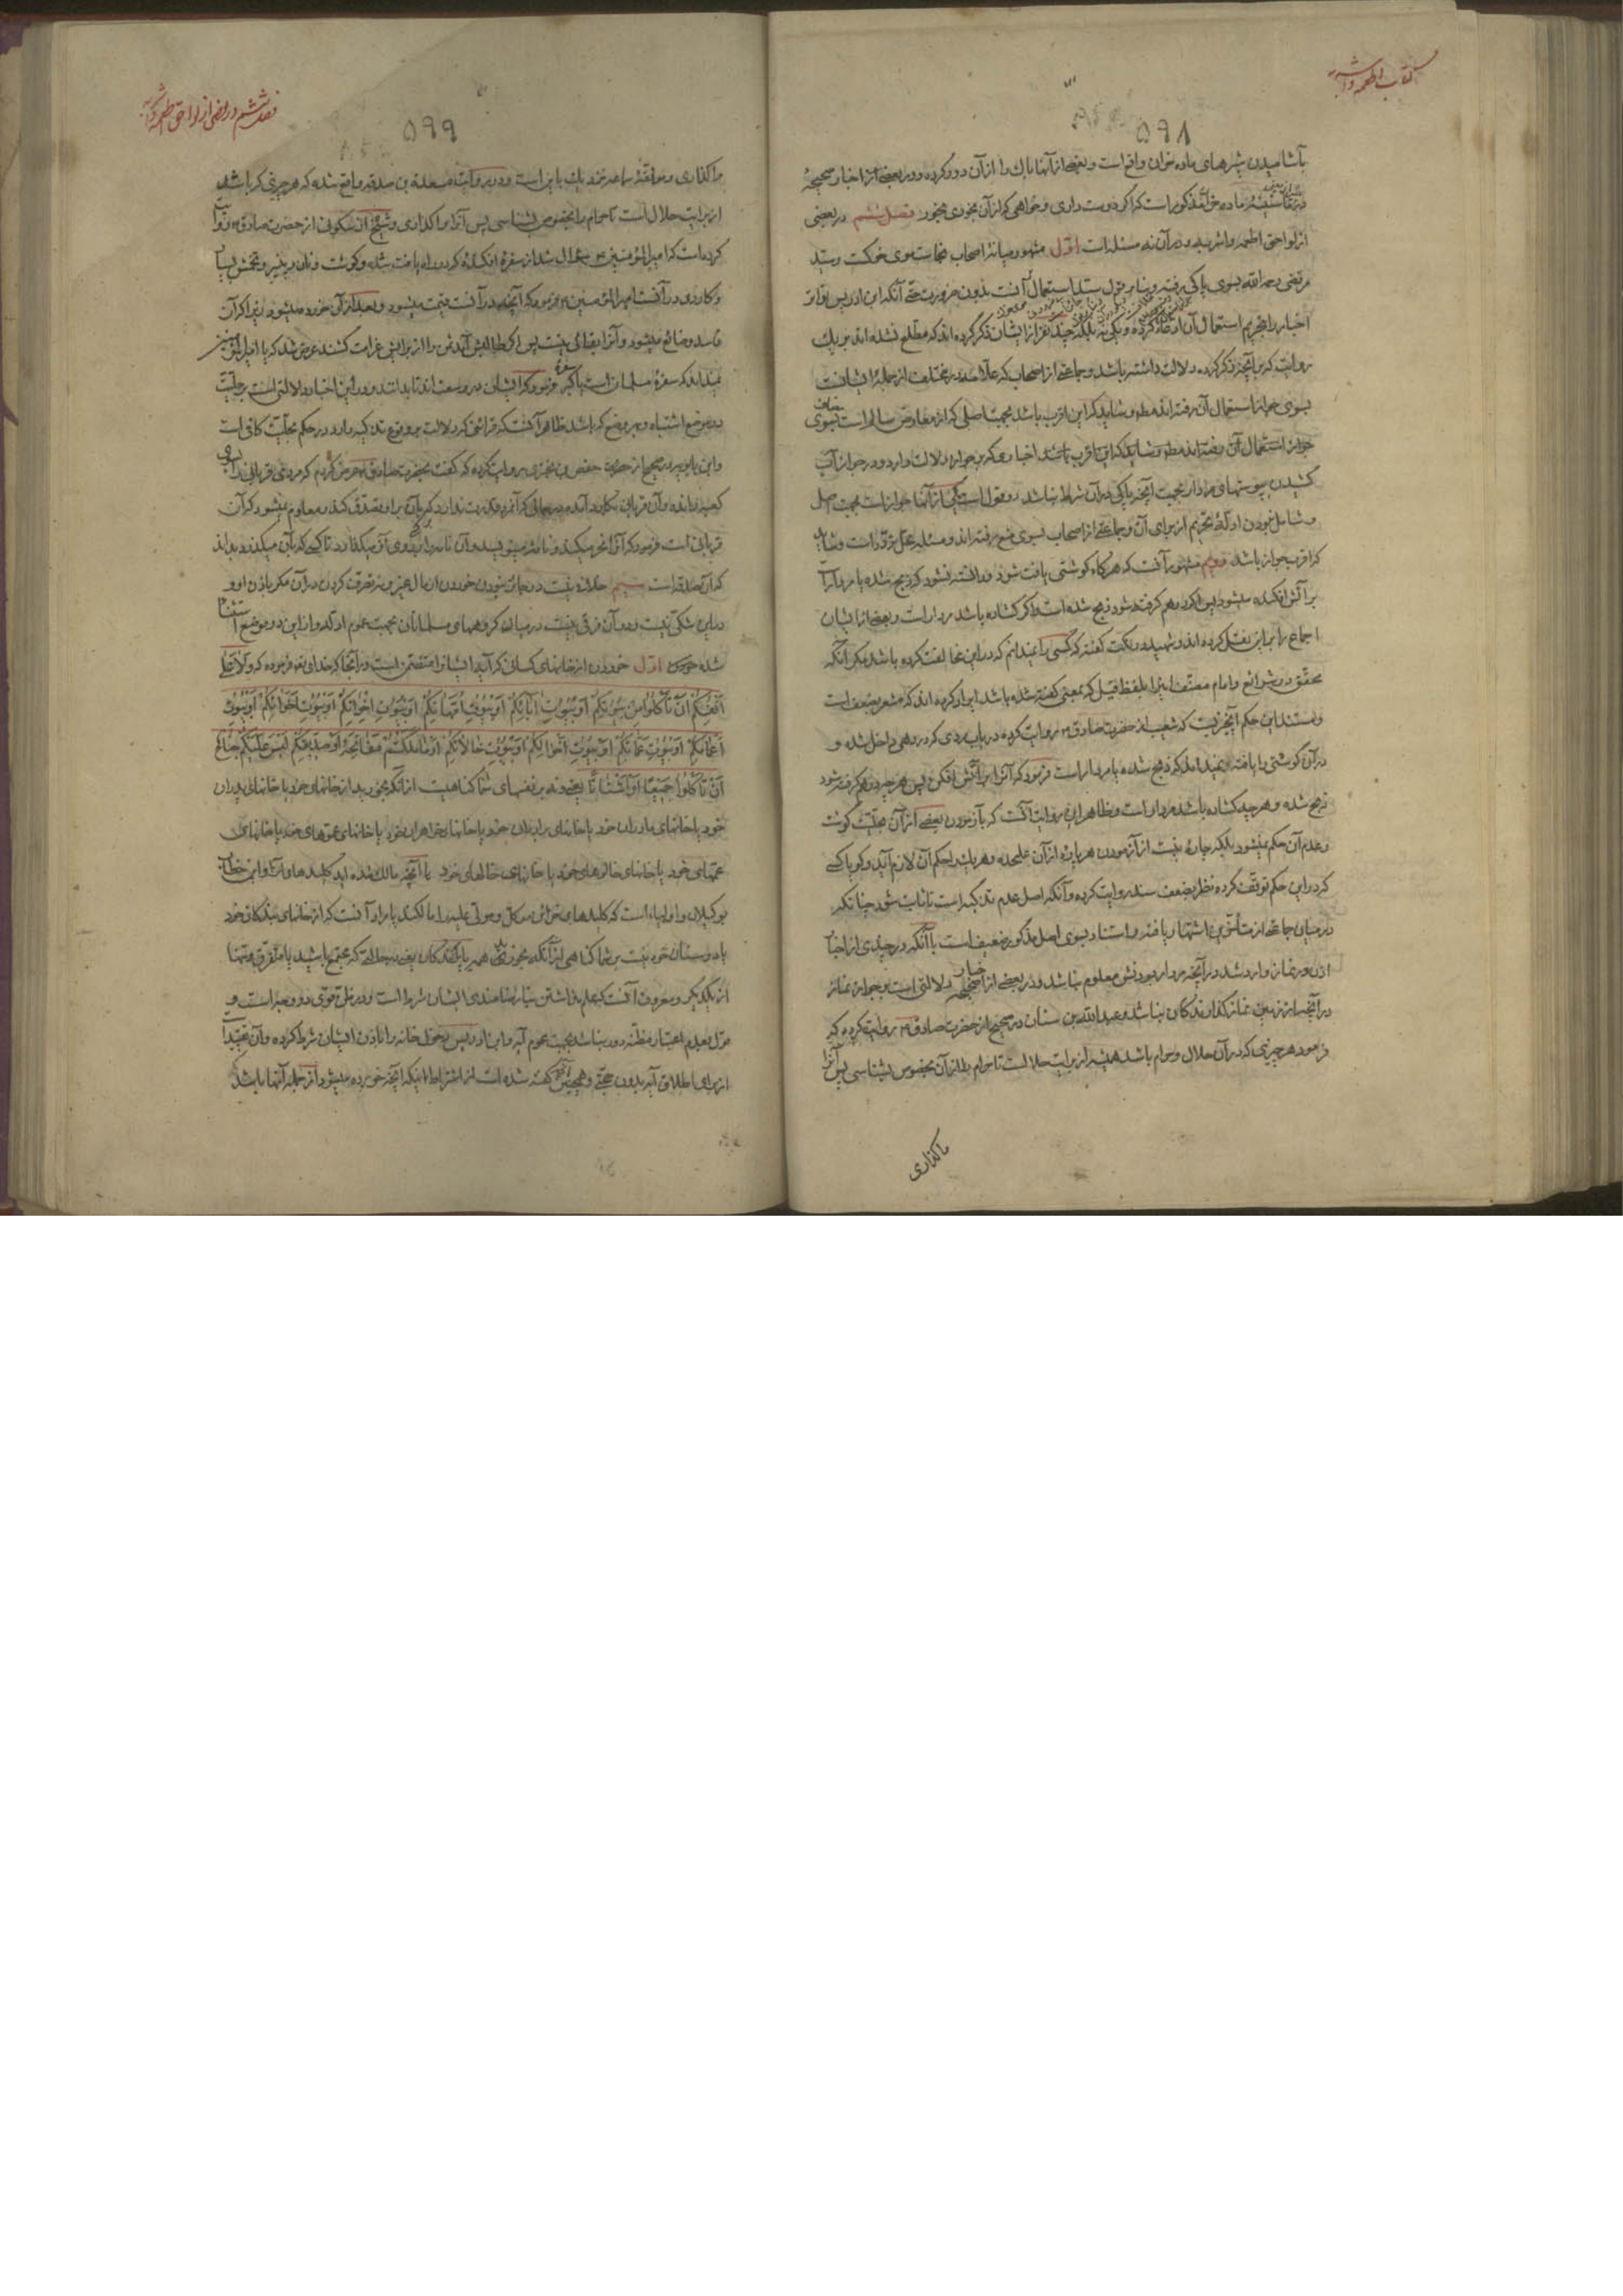 کتاب اطعمه و اشربه
۵۹۸
بآشامیدن شیرهای ماده خران واقع است و بعضی از آنها باك را از آن دور کرده و در بعضی از اخبار صحیحهٔ
ماده خر مذکور است که اگر دوست داری و خواهی که از آن بخوری بخور فصل ششم در بعضی
از لواحق اطعمه و اشربه و در آن نه مسئله است اوّل مشهور میانهٔ اصحاب نجاست موی خوکست و سید
مرتضی رحمه الله بسوی پاکی رفته و بنا بر قول سید استعمال آنست بدون ضرورت حتی آنکه ابن ادریس تواتر
اخبار را بتحریم استعمال آن ادعا کرده و بلکه چند نفر از ایشان ذکر کرده اند که مطلع نشده اند بر یك
روایت که بر آنچه ذکر کرده دلالت داشته باشد و جماعتی از اصحاب که علامه در مختلف از جملهٔ ایشانست
بسوی جواز استعمال آن رفته اند مطلقا و شاید که این اقرب باشد بجهت اصلی که از معارض سالم است بسوی
جواز استعمال آن رفته اند مطلقا و شاید که این اقرب باشد اخباری که بر جواز دلالت دارد و در جواز آب
کشیدن بپوستهای مردار بجهت آنچه پاکی در آن شرط نباشد دو قول است یکی از آنها جواز است بجهت اصل
و شامل نبودن ادلّهٔ تحریم از برای آن و جماعتی از اصحاب بسوی منع رفته اند و مسئله محل تردّد است و شاید
که اقرب جواز باشد دویم مشهور آنست که هرگاه گوشتی یافت شود و دانسته نشود که ذبح شده یا مردار
بر آتش افکنده میشود پس اگر درهم گرفته شود ذبح شده است و اگر گشاده باشد مردار است و بعضی از ایشان
اجماع را بر این نقل کرده اند و شهید در نکت گفته که کسی را نمیدانم که در این مخالفت کرده باشد مگر آنکه
محقق در شرائع و امام مصنف این را بلفظ قیل که بمعنی گفته شده باشد ایراد کرده اند که مشعر بضعف است
و مستند این حکم آنچیزیست که شعیب از حضرت صادق ع روایت کرده در باب مردی که در دهی داخل شده و
در آن گوشتی را یافته نمیداند که ذبح شده یا مردار است فرمود که آنرا بر آتش افکن پس هر چه درهم گرفته شود
ذبح شده و هر چه گشاده باشد مردار است و ظاهر این روایت آنست که بآزمودن بعضی از آن بحلّیت گوشت
و عدم آن حکم نمیشود بلکه چاره نیست از آزمودن هر پاره از آن علیحده و هر یك را حکم آن لازم آید و گویا کسی
که در این حکم توقّف کرده نظر بضعف سند روایت کرده و آنکه اصل عدم تذکیه است تا ثابت شود چنانکه
در میان جماعتی از متأخّرین اشتهار یافته و استناد بسوی اصل مذکور ضعیف است با آنکه در چندی از اخبار
اذن در نماز وارد شد در آنچه مردار بودنش معلوم نباشد و در بعضی از اخبار صحیحه دلالتی است بر جواز نماز
در آنچه از زمین نماز گذارندگان نباشد و عبدالله بن سنان در صحیح از حضرت صادق ع روایت کرده که
فرمود هر چیزی که در آن حلال و حرام باشد همیشه از برایت حلالست تا حرام را از آن بخصوص بشناسی پس آنرا
واگذاری
فصل ششم در بعضی از لواحق اطعمه و اشربه
۵۹۹
واگذاری و موثقهٔ سماعه نزدیك باین است و در روایت مسعدة بن صدقه واقع شده که هر چیزی که باشد
از برایت حلال است تا حرام را بخصوص بشناسی پس آنرا واگذاری و شیخ از سکونی از حضرت صادق ع روایت
کرده است که امیر المؤمنین ع سؤال شد از سفرهٔ افکنده که در راه یافت شده و گوشت و نان و پنیر و تخمش بسیار
و کاردی در آنست امیر المؤمنین ع فرمود که آنچه در آنست قیمت میشود و بعد از آن خورده میشود زیرا که آن
فاسد و ضائع میشود و آنرا بقائی نیست پس اگر طالبش آید ثمن را از برایش غرامت کشند عرض شد که یا امیر المؤمنین
نمیداند که سفرهٔ مسلمان است یا گبر فرمود که ایشان در وسعت اند تا بدانند و در این اخبار دلالتی است بر حلّیت
در موضع اشتباه و بر وضع که باشد ظاهر آنست که قرائنی که دلالت بر وقوع تذکیه دارد در حکم بحلّیت کافی است
و این بابویه در صحیح از حفص بن بختری روایت کرده که گفت بحضرت صادق ع عرض کردم که مردی قربانی را بسوی
کعبه رانده و آن قربانی بکار در آمده در مکانی که آنمرد قدرت ندارد که آن را تصدق کند و معلوم نمیشود که آن
قربانی است فرمود که آنرا نحر میکند و نامه مینویسد و آن نامه را بر روی آن میگذارد تا کسی که بآن میگذرد بداند
که آن صدقه است سیم حلال نیست و جایز نبودن خوردن از مال غیر و نه تصرف کردن در آن مگر باذن او و
در این شکی نیست و در آن فرقی نیست در میان گروههای مسلمانان بجهت عموم ادله و از این دو موضع استثنا
شده اوّل خوردن از خانهای کسانی که آیه ایشانرا متضمّن است در آنجا که خدای تعالی فرموده که وَلا عَلی
اَنْفُسِکُمْ اَنْ تَاْکُلُوا مِنْ بُیُوتِکُمْ اَوْ بُیُوتِ اٰبائِکُمْ اَوْ بُیُوتِ اُمَّهاتِکُمْ اَوْ بُیُوتِ اِخْوانِکُمْ اَوْ بُیُوتِ اَخَواتِکُمْ اَوْ بُیُوتِ
اَعْمامِکُمْ اَوْ بُیُوتِ عَمّاتِکُمْ اَوْ بُیُوتِ اَخْوالِکُمْ اَوْ بُیُوتِ خالاتِکُمْ اَوْ ما مَلَکْتُمْ مَفاتِحَهُ اَوْ صَدیقِکُمْ لَیْسَ عَلَیْکُمْ جُناحٌ
اَنْ تَاْکُلُوا جَمیعًا اَوْ اَشْتاتًا یعنی و نه بر نفسهای شما گناهیست از آنکه بخورید از خانهای خود یا خانهای پدران
خود یا خانهای مادران خود یا خانهای برادران خود یا خانهای خواهران خود یا خانهای عموهای خود یا خانهای
عمّهای خود یا خانهای خالوهای خود یا خانهای خالهای خود یا آنچه مالك شده اید کلیدهای آنرا و این خطاب
بوکیلان و اولیاء است که کلیدهای خزائن موکل و مولی علیه را مالکند یا مراد آنست که از خانهای بندگان خود
یا دوستان خود نیست بر شما گناهی از آنکه بخورید همه با یکدیگر یعنی در حالتی که مجتمع باشید یا متفرق و تنها
از یکدیگر و معروف آنست که علم نداشتن بنا رضامندی ایشان شرط است و در ظن قوی دو وجه است و
قول بعدم اعتبار مظنّه دور نباشد بجهت عموم آیه و ابن ادریس دخول خانه را باذن ایشان شرط کرده و آن تقیید
از برای اطلاق آیه بدون حجّتی و همچنین آنچه گفته شده است از اشتراط اینکه آنچه خورده میشود از جملهٔ آنها باشد